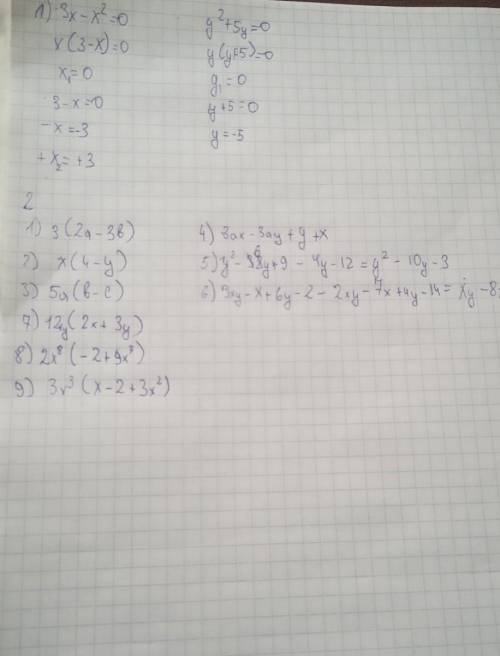 1) 3x - x² = 0
x(3-x)=0
x₁=0
3-x=0
-x=-3
+x₂=+3
y²+5y=0
y(y+5)=0
y₁=0
y+5=0
y=-5
2
1) 3(2a-3b)
2) x(4-y)
3) 5a(b-c)
7) 12y(2x+3y)
8) 2x⁸(-2+9x⁸)
9) 3x³(x-2+3x²)
4) 3ax-3ay+y+x
5) y²- 6y+9 - 4y-12 = y²-10y-3
6) 3xy-x+6y-2-2xy-7x+4y-14= xy-8